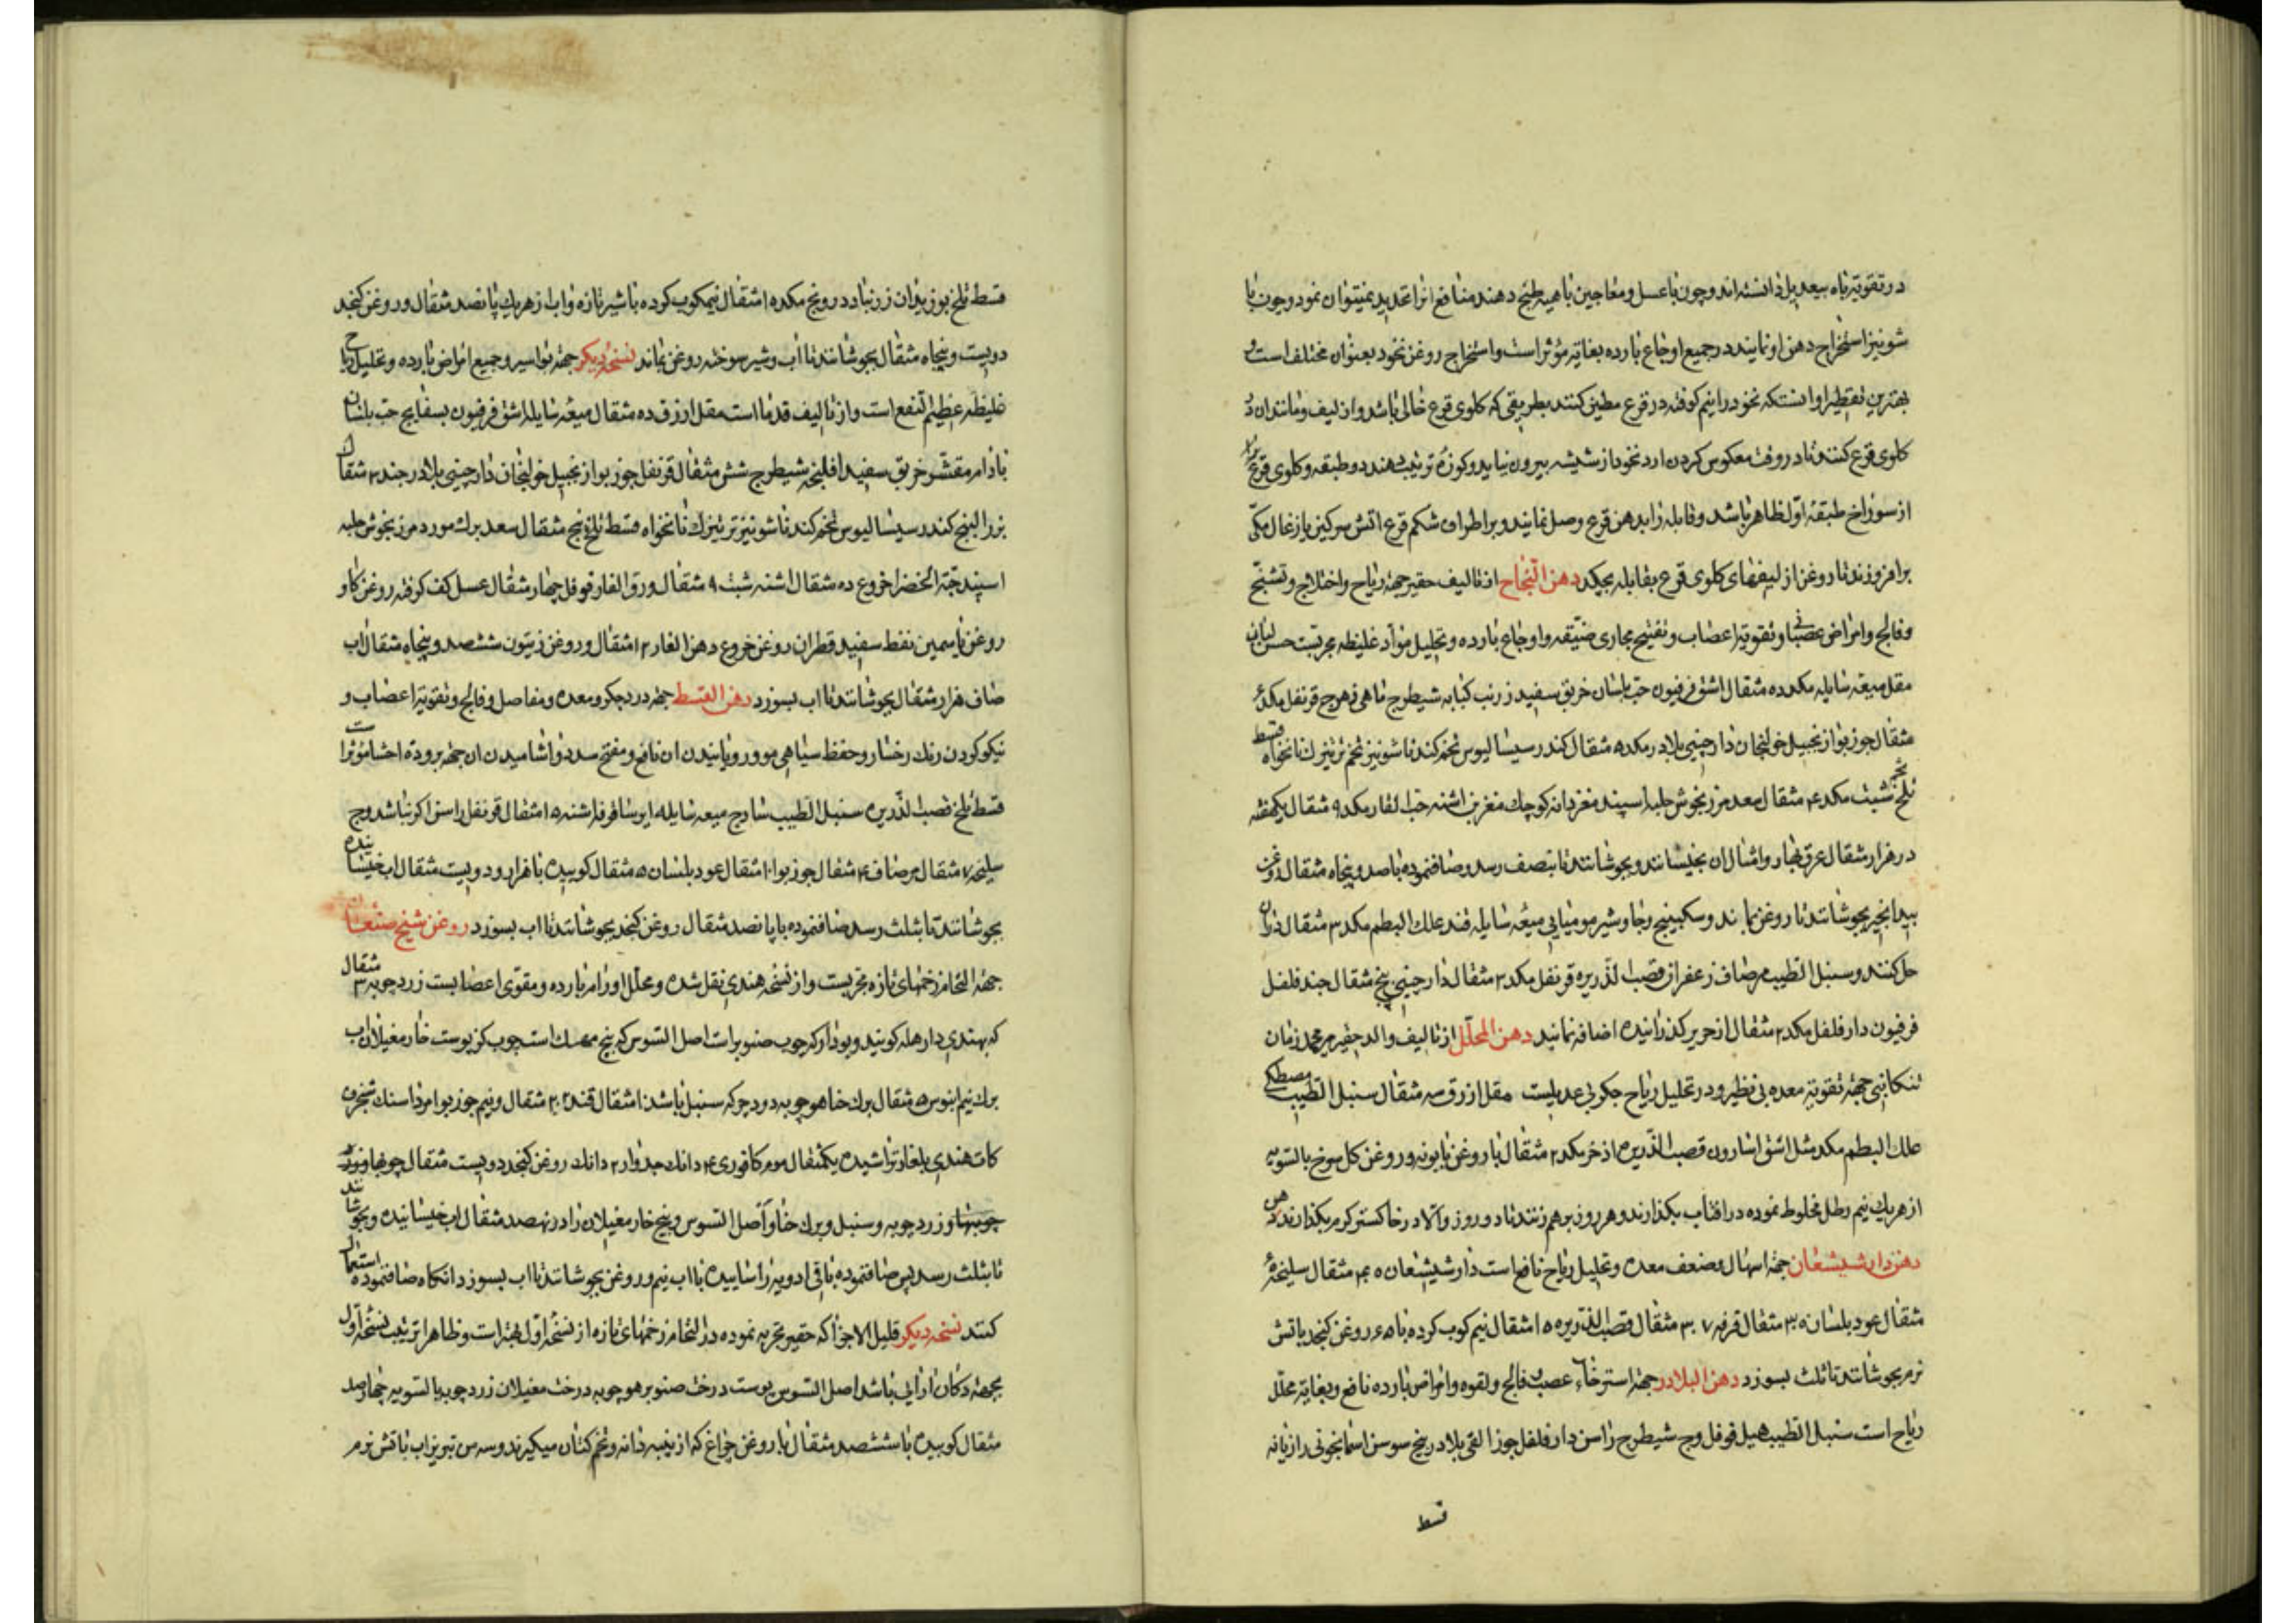 در تقویة باه بیعدیل دانسته‌اند و چون با عسل و معاجین باهیه طبخ دهند منافع انرا تحدید نمیتوان نمود و چون با
شونیز استخراج دهن او نمایند در جمیع اوجاع بارده بغایة مؤثر است و استخراج روغن نخود بعنوان مختلف است و
بهترین تقطیر او انستکه نخود را نیم کوفته در قرع مطین کنند بطریقی که کلوی قرع خالی باشد و از لیف و مانند ان در
کلوی قرع کنند تا در وقت معکوس کردن ارد نخود از شیشه بیرون نیاید و کوزهٔ ترتیب دهند دو طبقه و کلوی قرع
از سوراخ طبقهٔ اول ظاهر باشد و قابله را بدهن قرع وصل نمایند و بر اطراف شکم قرع اتش سرکین یا زغال مکی
برافروزند تا روغن از لیفهای کلوی قرع بقابله بچکد دهن النجاح از تالیف حقیر جهة ریاح و اختلاج و تشنج
و فالج و امراض عصبانی و تقویة اعضاب و تفتیح مجاری ضیقه و اوجاع بارده و تحلیل مواد غلیظه مجربست حسن لبان
مقل میعه سایله مکد ده مثقال اشق فرفیون حب بلسان خربق سفید زرنب کبابه شیطرج ماهی زهرج قرنفل مکد ۶
مثقال جوز بوا زنجبیل خولنجان دارچینی بلادر مکد ۵ مثقال کندر سیسالیوس تخم کندنا شونیز تخم ترتیزک نانخواه قسط
تلخ تخم شبت مکد ۴ مثقال سعد مرزنجوش حلبه اسپند مغز دانه کوچک مغز بن اشنه حب الغار مکد ۹ مثقال یکهفته
در هزار مثقال عرق بهار و امثال ان بخیسانند و بجوشانند تا بنصف رسد و صاف نموده با صد و پنجاه مثقال روغن
بیدانجیر بجوشانند تا روغن بماند و سکبینج و جاوشیر مومیایی میعه سایله قند علک البطم مکد ۳ مثقال دران
حل کنند و سنبل الطیب مر صاف زعفران قصب الذریره قرنفل مکد ۲ مثقال دارچینی پنج مثقال جند فلفل
فرفیون دارفلفل مکد ۲ مثقال از حریر کذرانیده اضافه نمایند دهن المحلل از تالیف والد حقیر میر محمد زمان
تنکابنی جهة تقویة معده بی نظیر و در تحلیل ریاح جکر بی عدیلست مقل ازرق سه مثقال سنبل الطیب مصطکی
علک البطم مکد مثل اشق اسارون قصب الذریره اذخر مکد ۲ مثقال با روغن بابونه و روغن کل سرخ بالسویه
از هر یک نیم رطل مخلوط نموده در افتاب بکذارند و هر روز برهم زنند تا دو روز و الا در خاکستر کرم بکذارند
دهن دارشیشعان جهة اسهال و ضعف معده و تحلیل ریاح نافع است دارشیشعان ۴۰ مثقال سلیخه ۶
مثقال عود بلسان ۳۰ مثقال قرفه ۳۰۷ مثقال قصب الذریره ۱۵ مثقال نیم کوب کرده با ۶۵ روغن کنجد باتش
نرم بجوشانند تا ثلث بسوزد دهن البلادر جهة استرخاء عصب و فالج و لقوه و امراض بارده نافع و بغایة محلل
ریاح است سنبل الطیب هیل فوفل وج شیطرج راسن دارفلفل جوز القی بلادر بیخ سوسن اسمانجونی رازیانه
قسط
قسط تلخ بوزیدان زرنباد درونج مکد ۱۵ مثقال نیمکوب کرده با شیر تازه و اب از هر یک پانصد مثقال و روغن کنجد
دویست و پنجاه مثقال بجوشانند تا اب و شیر سوخته روغن بماند نسخهٔ دیکر جهة بواسیر و جمیع امراض بارده و تحلیل ریاح
غلیظه عظیم النفع است و از تالیف قدما است مقل ازرق ده مثقال میعه سایله اشق فرفیون بسفایج حب بلسان
بادام مقشر خربق سفید افلنجه شیطرج شش مثقال قرنفل جوز بوا زنجبیل خولنجان دارچینی بلادر جند ۲ مثقال
بزرالبنج کندر سیسالیوس تخم کندنا شونیز ترتیزک نانخواه قسط تلخ پنج مثقال سعد برک مورد مرزنجوش حلبه
اسپند حبة الخضرا خروع ده مثقال اشنه شبت ۹ مثقال ورق الغار فوفل چهار مثقال عسل کف کرفته روغن کاو
روغن یاسمین نفط سفید قطران روغن خروع دهن الغار ۱۲ مثقال و روغن زیتون ششصد و پنجاه مثقال اب
صاف هزار مثقال بجوشانند تا اب بسوزد دهن القسط جهة درد جکر و معده و مفاصل و فالج و تقویة اعضاب و
نیکو کردن رنک رخسار و حفظ سیاهی مو و رویانیدن ان نافع و مفتح سدد و اشامیدن ان جهة برودة احشا مؤثر است
قسط تلخ قصب الذریره سنبل الطیب ساذج میعه سایله ایرسا قرفه اشنه ۱۵ مثقال قرنفل راسن اکر نباشد وج
سلیخه ۷ مثقال مر صاف ۴ مثقال جوز بوا ۱۰ مثقال عود بلسان ۵ مثقال کوبیده با هزار و دویست مثقال اب خیسانیده
بجوشانند تا بثلث رسد صاف نموده با پانصد مثقال روغن کنجد بجوشانند تا اب بسوزد روغن شیخ صنعان
جهة التحام زخمهای تازه مجربست و از نسخه هندی نقل شده و محلل اورام بارده و مقوی اعضا است زردچوبه ۳ مثقال
که بهندی دارهلد کویند و بودار که چوب صنوبر است اصل السوس که بیخ مهک است چوب کز پوست خار مغیلان اب
برک نیم ابنوس ۵ مثقال برک حنا هوچوبه دودچوکه سنبل باشد ۱ مثقال قند ۲۰۲ مثقال و نیم جوز بوا مرداسنک شنجرف
کات هندی بلغار تراشیده یکمثقال موم کافوری ۴ دانک جدوار ۲ دانک روغن کنجد دویست مثقال
چوبها و زردچوبه و سنبل و برک حنا و اصل السوس و بیخ خار مغیلان را در نهصد مثقال اب خیسانیده و بجوشانند
تا بثلث رسد پس صاف نموده باقی ادویه را ساییده با اب نیم و روغن بجوشانند تا اب بسوزد انکاه صاف نموده استعمال
کنند نسخه دیکر قلیل الاجزا که حقیر تجربه نموده در التحام زخمهای تازه از نسخهٔ اول بهتر است و ظاهرا ترتیب نسخهٔ اول
بجهة دکان ارایی باشد اصل السوس پوست درخت صنوبر هوچوبه درخت مغیلان زردچوبه بالسویه چهارصد
مثقال کوبیده با ششصد مثقال با روغن چراغ که از پنبه دانه و تخم کتان میکیرند و سه من تبریز اب باتش نرم